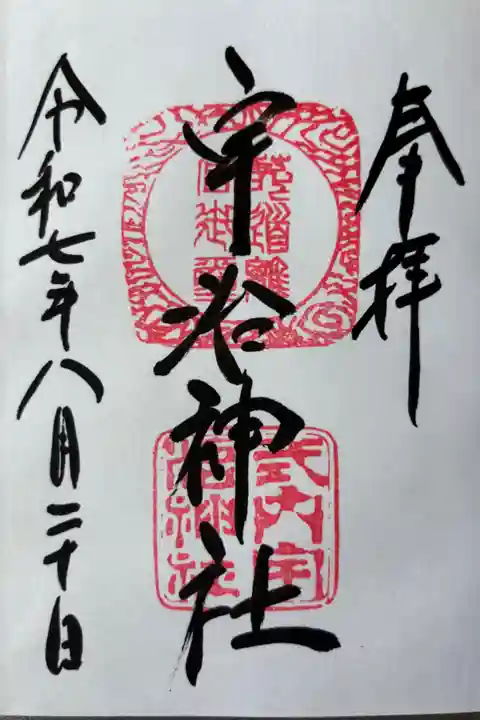 奉拝
宇治神社
令和七年八月二十日
式内宇
治神社